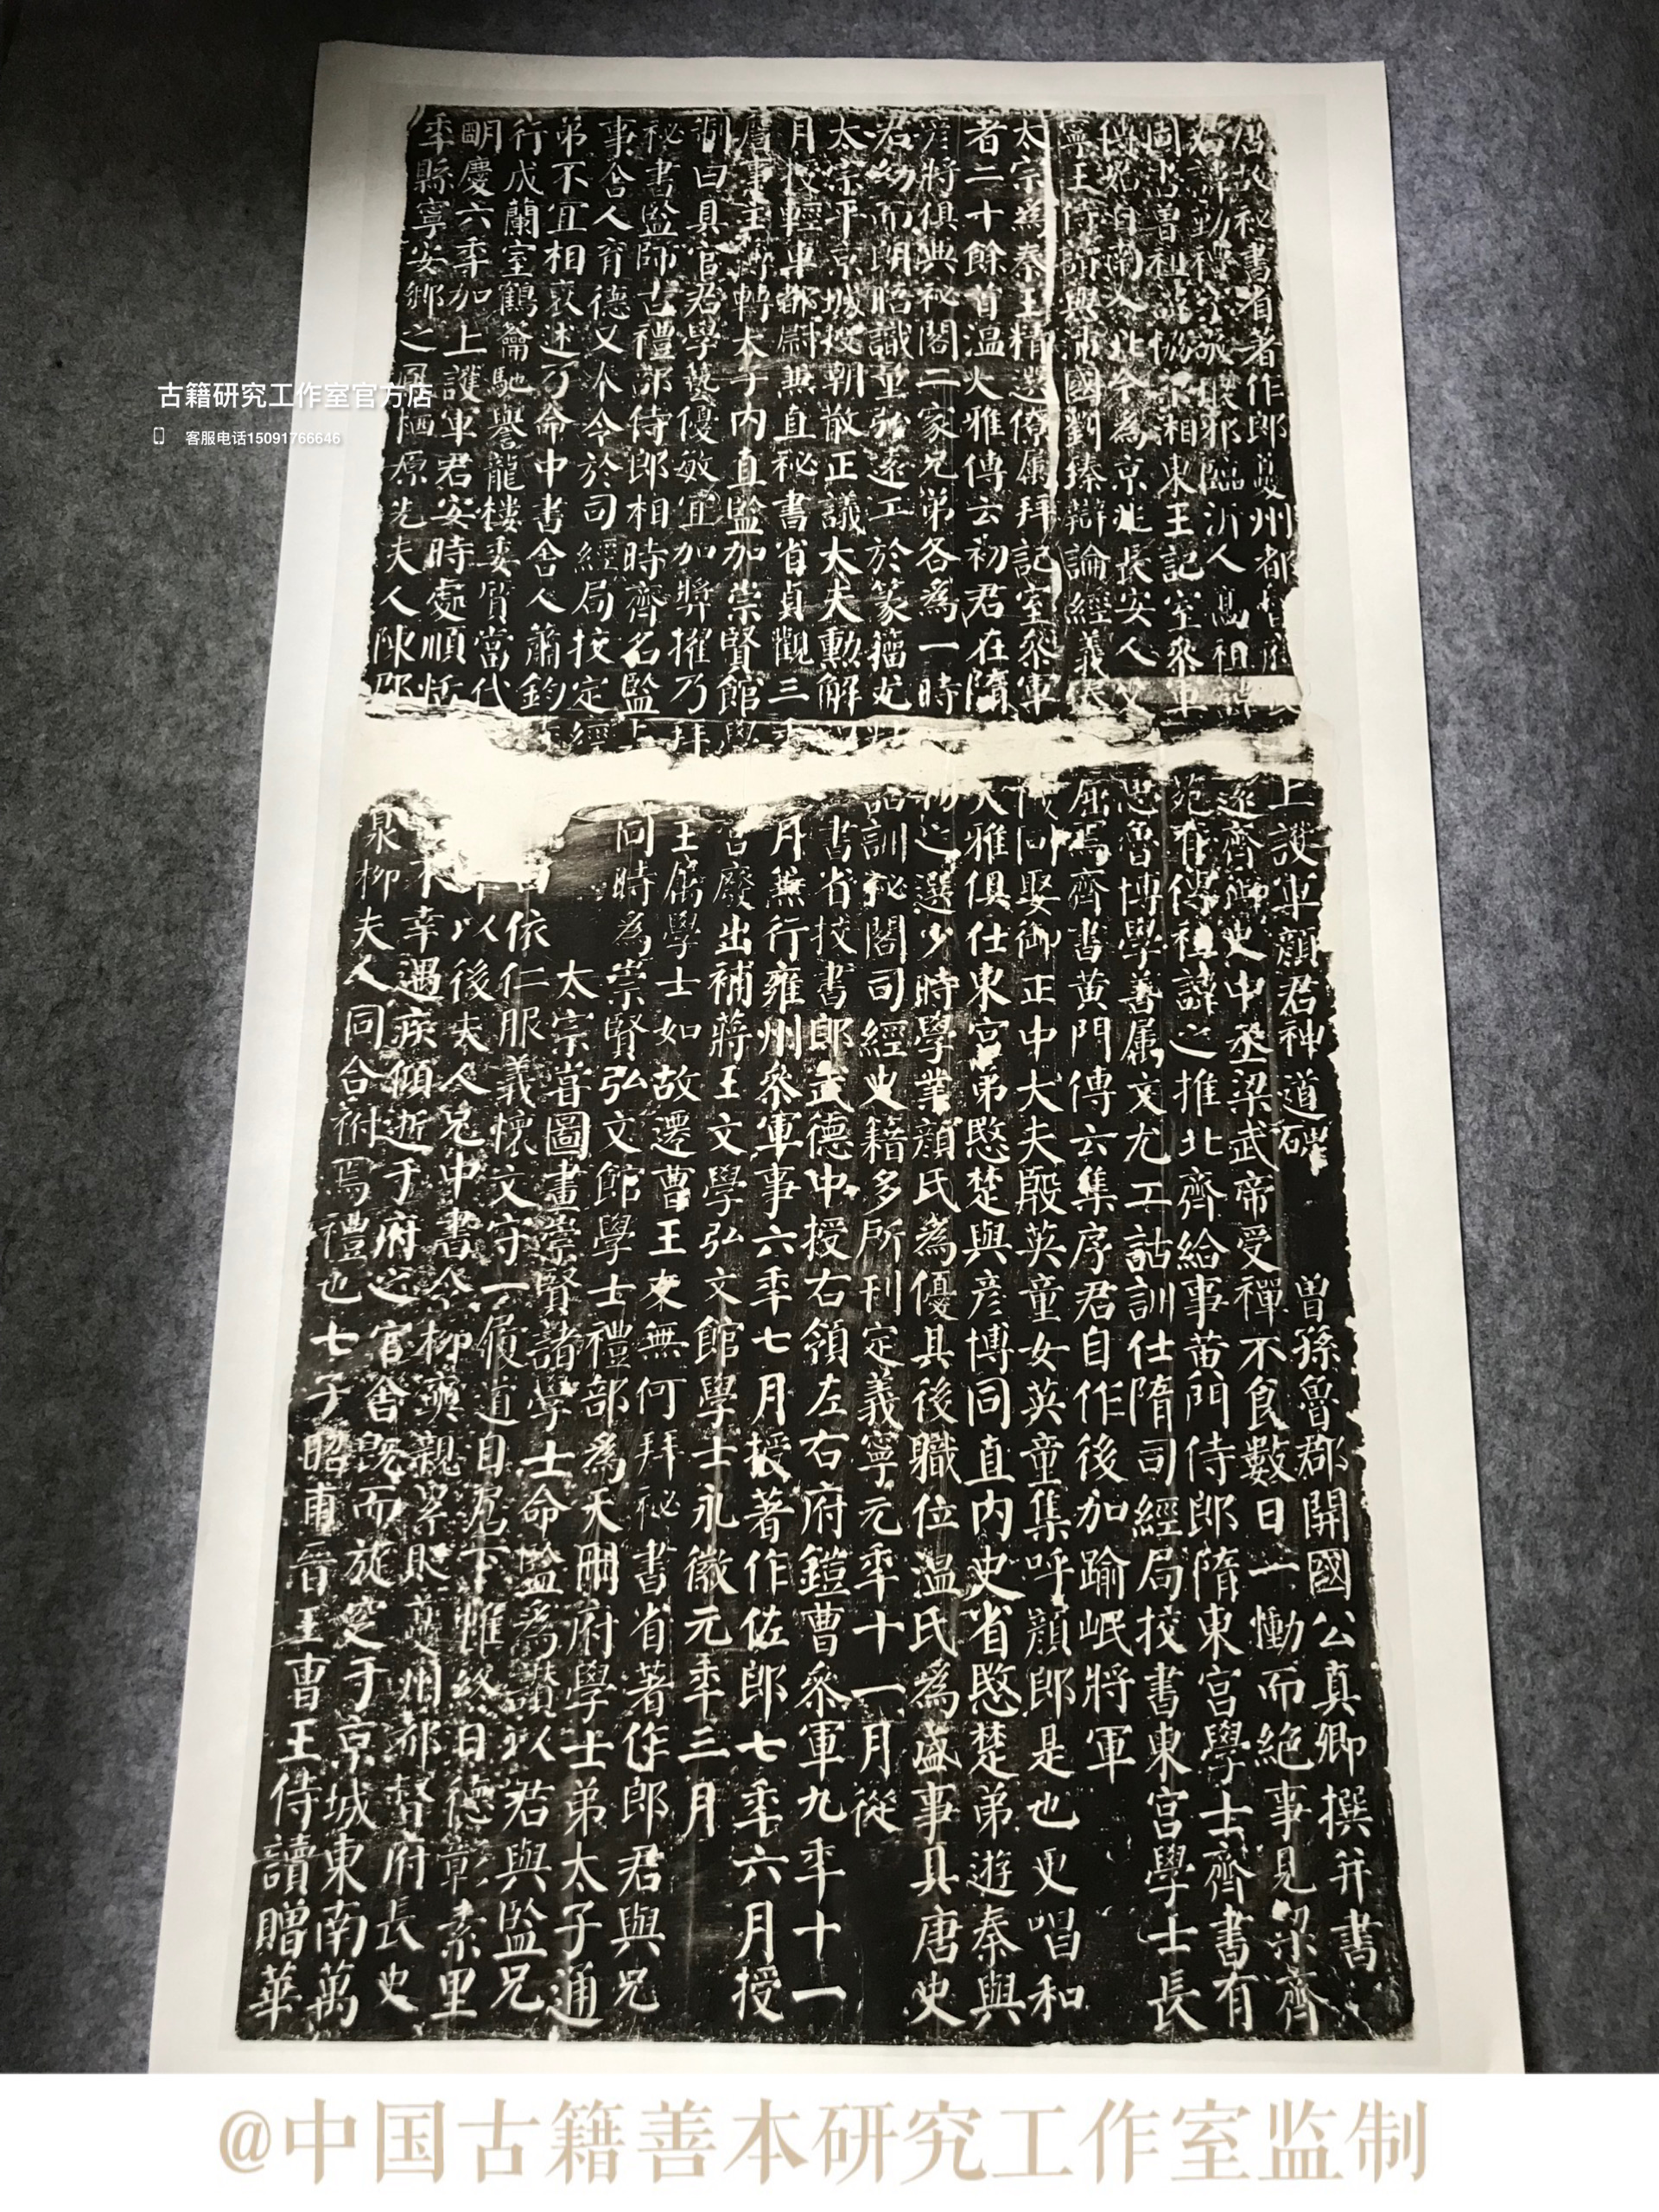 唐故秘書省著作郎夔州都督府長史上護軍顏君神道碑 曾孫魯郡開國公真卿撰并書
君諱勤禮字敬琅邪臨沂人高祖諱遠齊御史中丞梁武帝受禪不食數日一慟而絕事見梁齊
周書曾祖諱協梁湘東王記室參軍苑有傳祖諱之推北齊給事黃門侍郎隋東宮學士齊書有
傳始自南入北今為京兆長安人父思魯博學善屬文尤工詁訓仕隋司經局校書東宮學士長
寧王侍讀與沛國劉臻辯論經義臻屈焉齊書黃門傳云集序君自作後加踰岷將軍
太宗為秦王精選僚屬拜記室參軍儀同娶御正中大夫殷英童女英童集呼顏郎是也更唱和
者二十餘首溫大雅傳云初君在隋大雅俱仕東宮弟愍楚與彥博同直內史省愍楚弟遊秦與
彥將俱典秘閣二家兄弟各為一時物之選少時學業顏氏為優其後職位溫氏為盛事具唐史
君幼而朗晤識量弘遠工於篆籀尤精詁訓秘閣司經史籍多所刊定義寧元年十一月從
太宗平京城授朝散正議大夫勳解書省校書郎武德中授右領左右府鎧曹參軍九年十一
月授輕車都尉兼直秘書省貞觀三年月兼行雍州參軍事六年七月授著作佐郎七年六月授
詹事主簿轉太子內直監加崇賢館學宮廢出補蔣王文學弘文館學士永徽元年三月
制曰具官君學藝優敏宜加獎擢乃拜王屬學士如故遷曹王友無何拜秘書省著作郎君與兄
秘書監師古禮部侍郎相時齊名監與同時為崇賢弘文館學士禮部為天冊府學士弟太子通
事舍人育德又奉令於司經局校定經太宗嘗圖畫崇賢諸學士命監為讚以君與監兄
弟不宜相褒述乃命中書舍人蕭鈞曰依仁服義懷文守一履道自居下帷終日德彰素里
行成蘭室鶴籥馳譽龍樓委質當代年以後夫人兄中書令柳奭親累貶夔州都督府長史
明慶六年加上護軍君安時處順恬不幸遇疾傾逝于府之官舍既而旋窆于京城東南萬
年縣寧安鄉之鳳栖原先夫人陳郡泉柳夫人同合祔焉禮也七子昭甫晉王曹王侍讀贈華
古籍研究工作室官方店
客服电话15091766646
@中国古籍善本研究工作室监制